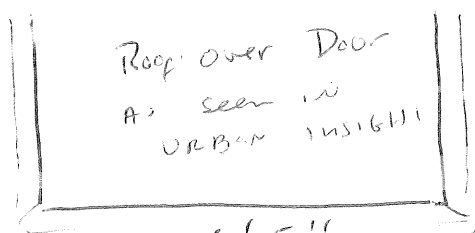 Roof over Door
As seen in
URBAN INSIGHT